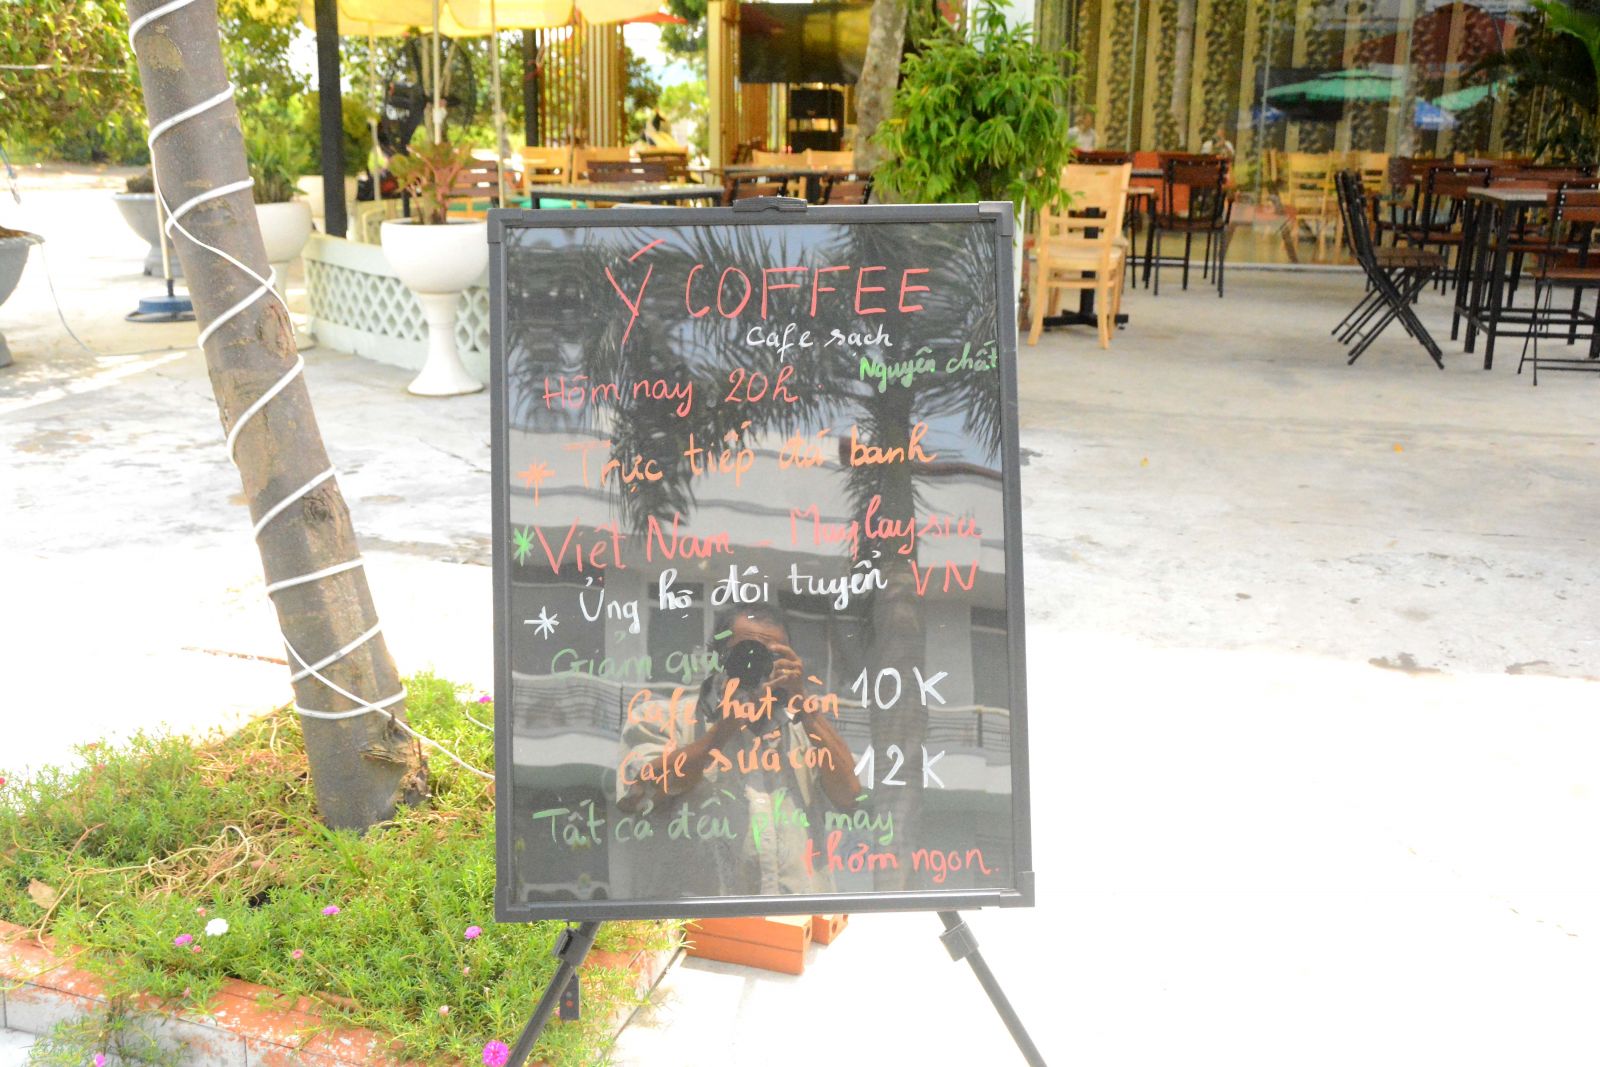 Ý COFFEE
Cafe sạch
Nguyên chất
Hôm nay 20h
* Trực tiếp đá banh
* Việt Nam - Maylaysia
* Ủng hộ đội tuyển VN
Giảm giá :
Cafe hạt còn 10K
Cafe sữa còn 12K
Tất cả đều pha máy
thơm ngon.